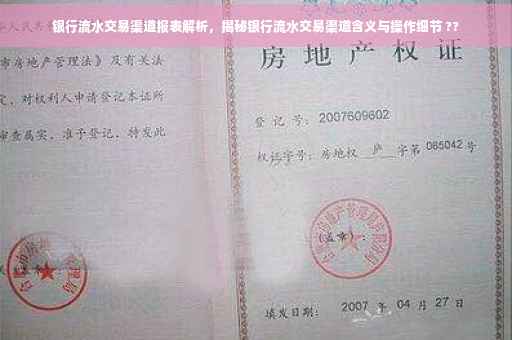 银行流水交易渠道报表解析，揭秘银行流水交易渠道含义与操作细节 ??
人民共和国
市房地产管理法》及有关法
定，对权利人申请登记本证所
审查属实，准予登记，特发此
房地产权
登 记 号：2007609602
权证字号：房地权 庐 字第 085042 号
（盖章）：
填发日期： 2007 年 04 月 27 日